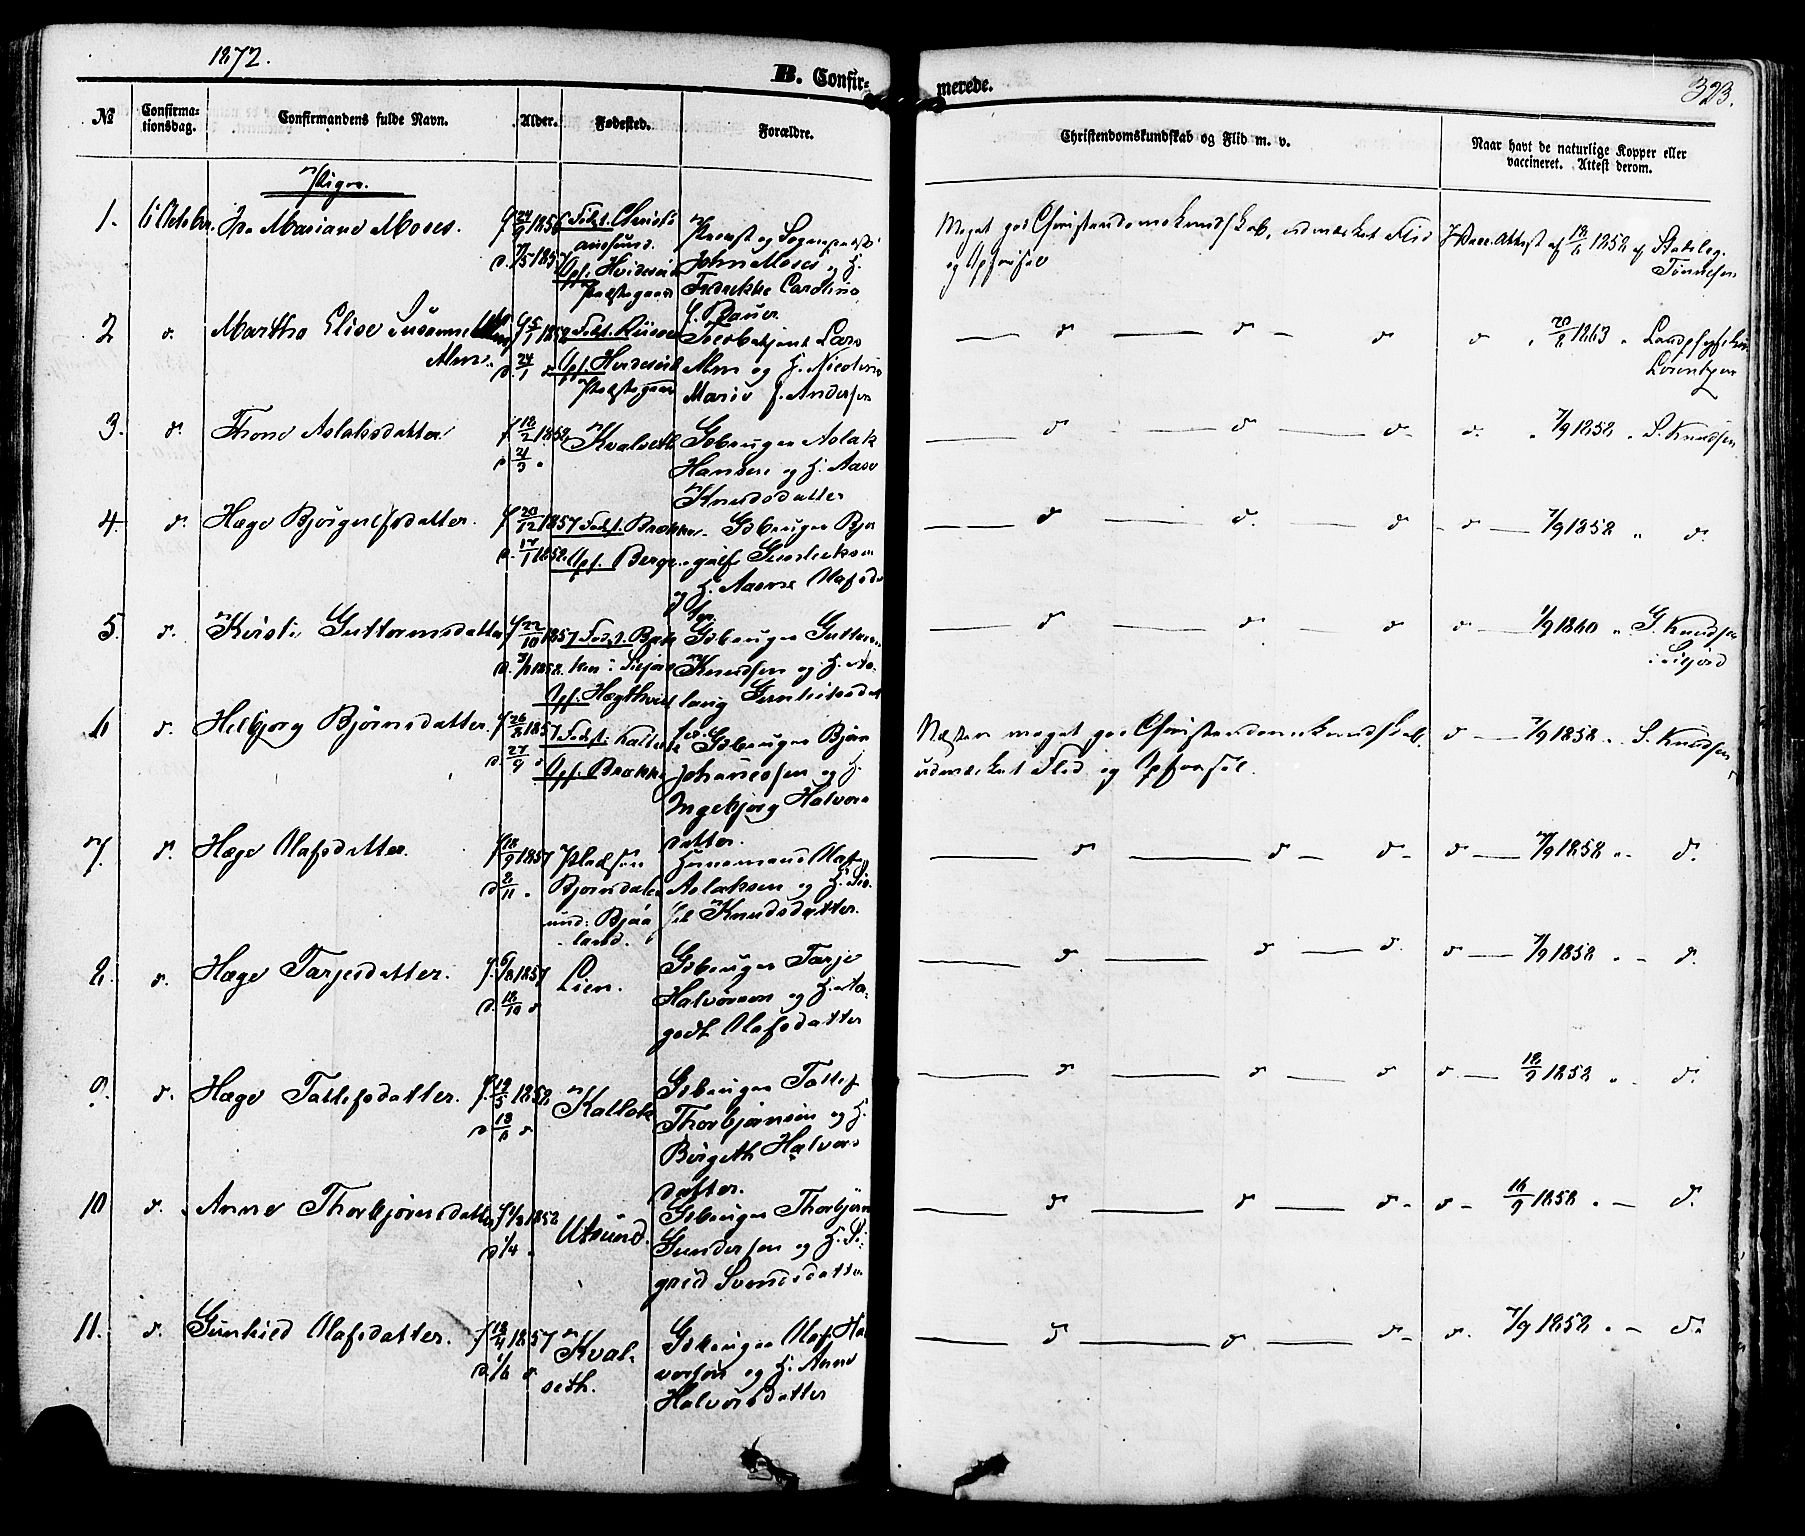 1872.
B. Confir-
merede.
323.
№
Confirma-
tionsdag.
Confirmandens fulde Navn.
Alder.
Fødested.
Forældre.
Christendomskundskab og Flid m. v.
Naar havt de naturlige Kopper eller
vaccineret. Attest derom.
Piger.
1. 6 October. Mariane Moses. f. 24/9 1856 Født. Christi-
ansund.
d. 1857 Opf. Hvideseid
Præstegaard
Provst og Sognepræst
John Moses og H.
Fredrikke Caroline
f. Bauer
Meget god Christendomskundskab, udmærket Flid
og Opførsel
Vacc. Attest af 1858 af Stabslæg.
Tønnesen
2 d. Martha Elise Susanne
Alm. f. 5/1 1858
d. 24/1 d.
Opf. Hvideseid
Præstegaard
Lars
Alm og H. Nicoline
Marie f. Andersen
d d d d 1863 Landphysikus
Lorentzen
3. d. Thone Aslaksdatter f. 18/2 1858
d. 21/3
Kvalseth
Gbruger Aslak
Hansen og H. Aase
Knudsdatter
d d d d. 7/9 1858 S. Knudsen
4 d. Hæge Bjørgulfsdatter. f. 20/12 1857 Født. Brække
d. 17/1 1858. Opf. Berge
Gbruger Bjør
gulf
og H. Aasne Olafsda
tter
d d. d d 7/9 1858 " d.
5. d. Kirsti Guttormsdatter f. 22/10 1857 Fødst.
d. 1858. i Siljord
Opf. Hægtveit
Gbruger Guttorm
Knudsen og H. As-
laug
d d d d 1/9 1860 " G. Knudsen
i Siljord
6 d. Helbjørg Bjørnsdatter f. 26/8 1857 Fødst:
d. 27/9 d
Opf. Brække
Gbruger Bjørn
Johannessen og H.
Ingebjørg Halvors
datter.
Næsten meget god Christendomskundskab,
udmærket Flid og Opførsel.
d 7/9 1858 S. Knudsen
7. d. Hæge Olafsdatter. f. 18/9 1857
d 2/11
Pladsen
Bjørnsdalen
und: Bjaa
land.
Huusmand Olaf
Aslaksen og H. Sis-
sel Knudsdatter.
d d d d 7/9 1858 d.
8. d. Hæge Tarjesdatter. f. 6/8 1857
d. 18/10 d
Lien.
Gbruger Tarje
Halvorsen og H. Aa-
godt Olafsdatter
d d d. d 7/9 1858 d.
9. d. Hæge Tallefsdatter. f. 19/5 1858
d. 13/6 d
Kallak
Gbruger Tallef
Thorbjørnsen og H.
Birgeth Halvors
datter.
d d d d. 18/9 1858 d.
10 d. Anne Thorbjørnsdatter f. 1858
d. 1/4
Utsund.
Gbruger Thorbjørn
Gundersen og H. Si-
grid Svendsdatter
d d d d 16/9 1858 d.
11. d. Gunhild Olafsdatter. f. 13/4 1857
d. 1/6 d
Kval-
seth.
Gbruger Olaf Hal
vorsen og H. Anne
Halvorsdatter
d d d d. 7/9 1858 d.